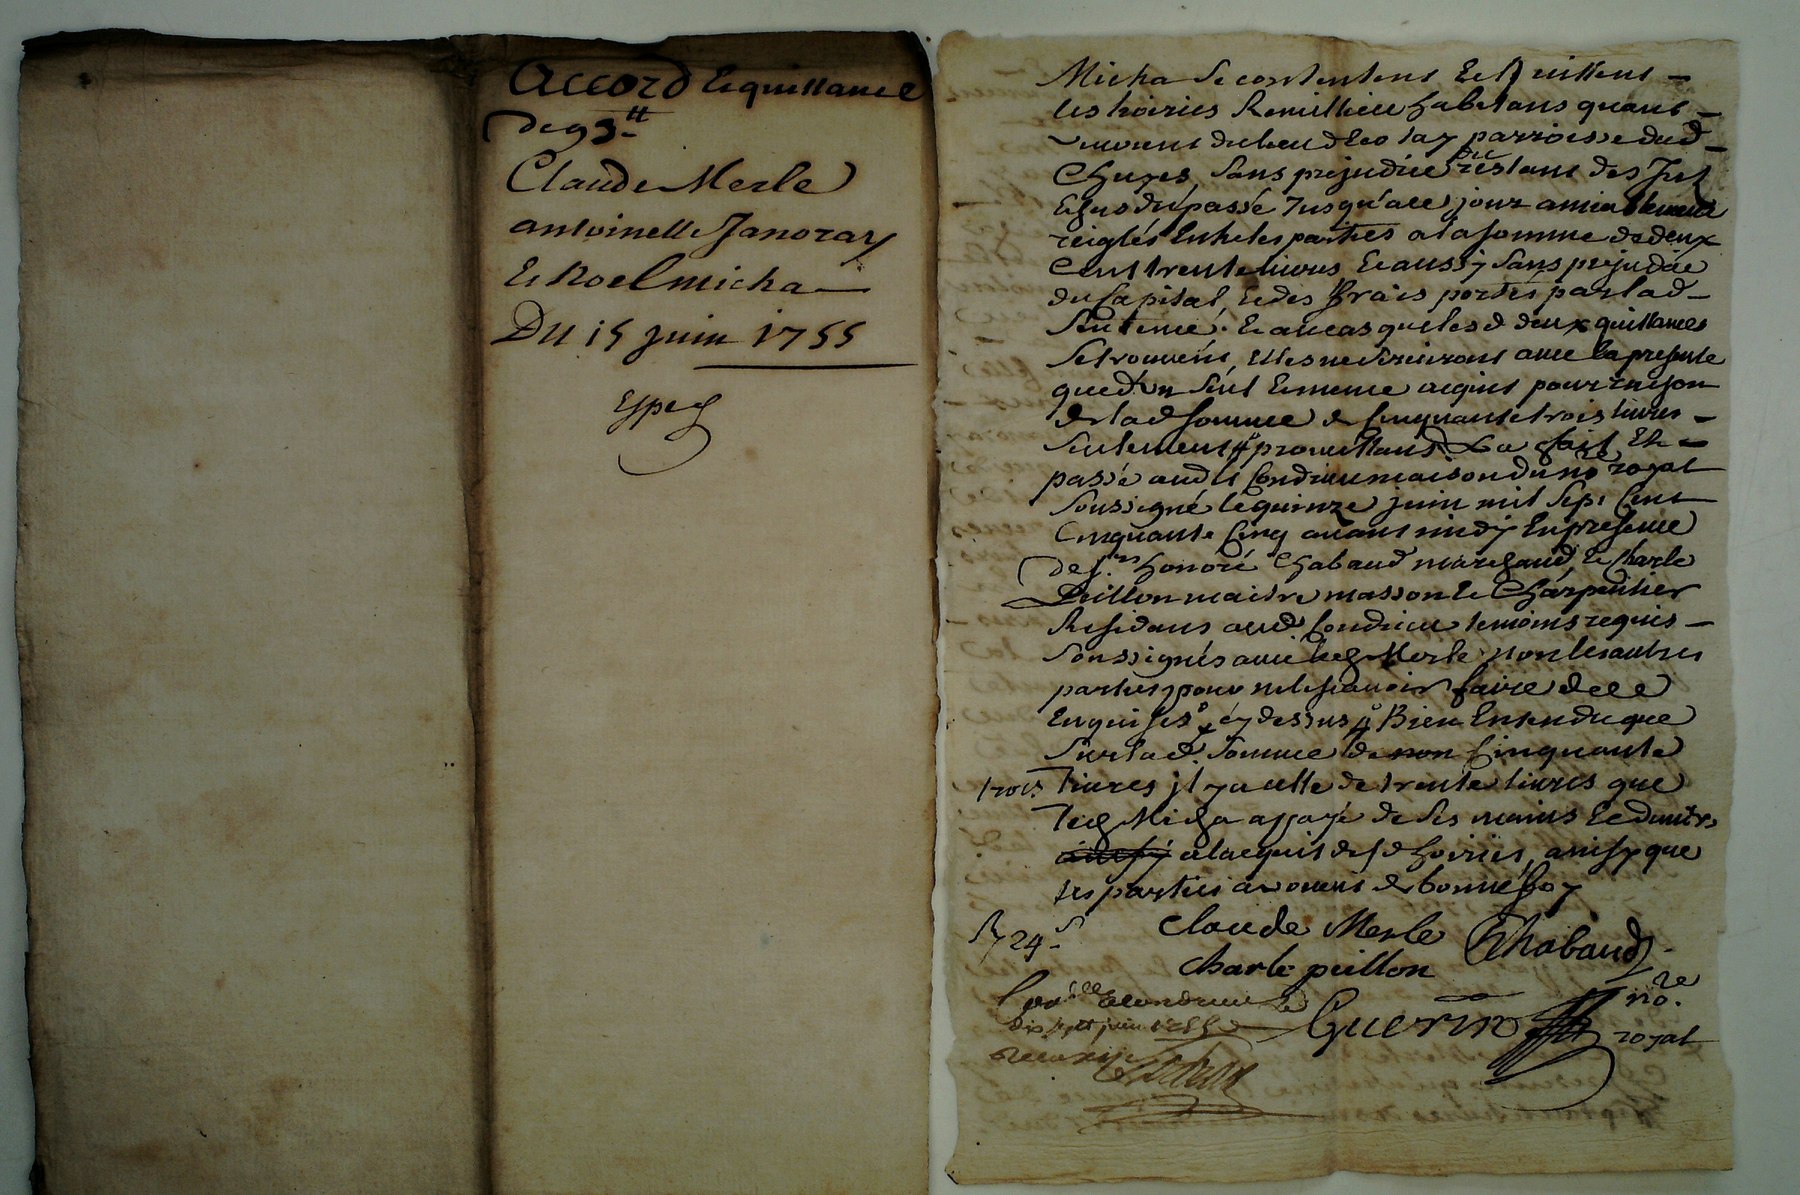 Accord Et quittance
De 93 tt
Claude Merle
antoinette Janoray
Et Noel micha
DU 15 juin 1755
Micha Se contentent Et quittent
les hoiries Remillieu habitans quant
vivoient du lieu de parroisse dud
Chuyes, Sans prejudice du restant des
Echus du passé Jusqu'a ce jour amiablement
reiglés Entre les parties a la somme de deux
Cent trente livres Et aussy Sans prejudice
du Capital, Et des ffrais portés par lad
Sentence. Et au cas que lesd deux quittances
Se trouvent, Elles ne Serviront avec la presente
que d'un Seul Et meme acquit pour raison
de lad somme de Cinquante trois livres
Seulement promettans fait Et
passé aud Condrieu maison du no re royal
Soussigné le quinze juin mil Sept Cent
Cinquante Cinq avant midy En presence
de honoré Chabaud marchand, Et Charle
Peillon maitre masson Et Charpentier
Residans aud Condrieu temoins requis
Soussignés avec led Merle non les autres
parties pour ne le scavoir faire de ce
Enquises cy dessus Bien Entendu que
Sur lad Somme de non Cinquante
trois livres jl y a celle de trente livres que
led Micha a payé de Ses mains Et deniers
a lacquit desd hoiries, ainsy que
les parties avouent de bonne ffoy
claude Merle Chabaud
charle peillon
R 29 s
no. re
Con lle a Condrieu le
Guerin royal
dix sept juin 1755